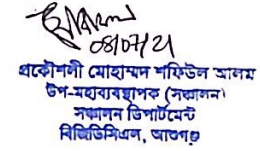 08/07/21
প্রকৌশলী মোহাম্মদ শফিউল আলম
উপ-মহাব্যবস্থাপক (সঞ্চালন)
সঞ্চালন ডিপার্টমেন্ট
বিজিডিসিএল, আশুগঞ্জ